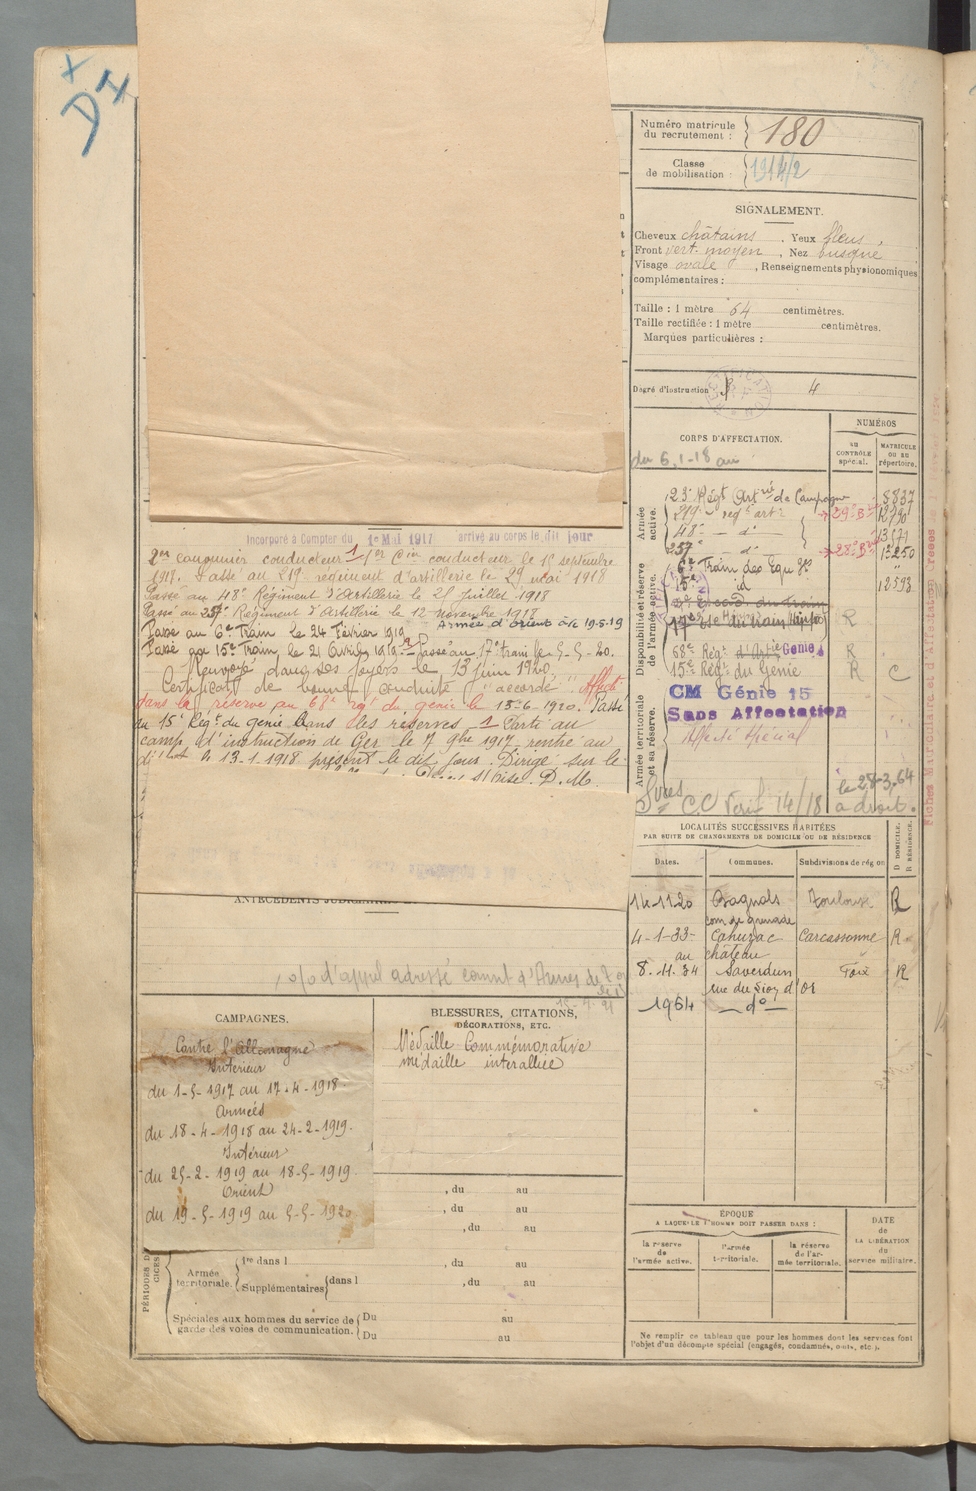 DX
Numéro matricule du recrutement : 180
Classe de mobilisation : 1914/2
SIGNALEMENT.
Cheveux châtains, Yeux bleus,
Front vert. moyen, Nez busqué
Visage ovale, Renseignements physionomiques
complémentaires :
Taille : 1 mètre 64 centimètres.
Taille rectifiée : 1 mètre centimètres.
Marques particulières :
Degré d'instruction 4
CORPS D'AFFECTATION.
NUMÉROS
au CONTRÔLE spécial.
MATRICULE OU au répertoire.
du 6-1-18 au
Armée active.
23e Régt Artrie de Campagne 8837
219e regt artie 29e Brie 12790
48e d°
237e d° 28e Brie
6e Train des Equ ges
15e id 12593
Disponibilité et réserve de l'armée active.
17e Esc du train R
68e Régt d'Artie Génie R
15e Régt du Génie R C
CM Génie 15
Sans Affectation
Affecté Spécial
Armée territoriale et sa réserve.
C.C 14/18
le 28-3.64
à droit.
Incorporé à Compter du 1er Mai 1917 arrivé au corps le dit jour
2me canonnier conducteur 1 1er Cier conducteur le 15 septembre
1917. Passé au 219e régiment d'artillerie le 29 mai 1918
Passé au 48e Régiment d'Artillerie le 25 Juillet 1918
Passé au 237e Régiment d'Artillerie le 12 novembre 1918
Passé au 6e Train le 24 Février 1919 Armée d'Orient le 19-5-19
Passé au 15e Train, le 21 Avril 1919. Passé au 17e train le 5-5-20.
Renvoyé dans ses foyers le 13 Juin 1920.
Certificat de bonne conduite "accordé". Affecté
dans la réserve au 68e rgt du génie le 15-6-1920. Passé
au 15e Régt du génie dans les réserves 1 Parti au
camp d'instruction de Ger le 7 9bre 1917, rentré au
dépôt le 13-1-1918 présent le dit jour. Dirigé sur le
D.M.
ANTÉCÉDENTS JUDICIAIRES
o/o d'appel adressé comnt d'Armes de
LOCALITÉS SUCCESSIVES HABITÉES
PAR SUITE DE CHANGEMENTS DE DOMICILE OU DE RÉSIDENCE
D DOMICILE. R RÉSIDENCE.
Dates. Communes. Subdivisions de région
14-11-20 Bagnols Toulouse R
con de grenade
4-1-33 Cahuzac Carcassonne R
au château
8.11.34 Saverdun Foix R
rue du Lion d'or
1964 — d° —
CAMPAGNES.
Contre l'Allemagne
Intérieur
du 1-5-1917 au 17-4-1918.
Armées
du 18-4-1918 au 24-2-1919.
Intérieur
du 25-2-1919 au 18-5-1919.
Orient
du 19-5-1919 au 5-5-1920
BLESSURES, CITATIONS,
DÉCORATIONS, ETC.
Médaille Commémorative
médaille interalliée
, du au
, du au
, du au
Armée territoriale.
1re dans l , du au
Supplémentaires dans l , du au
Spéciales aux hommes du service de garde des voies de communication.
Du au
Du au
ÉPOQUE
A LAQUELLE L'HOMME DOIT PASSER DANS :
la réserve de l'armée active.
l'armée territoriale.
la réserve de l'armée territoriale.
DATE de LA LIBÉRATION du service militaire.
Ne remplir ce tableau que pour les hommes dont les services font
l'objet d'un décompte spécial (engagés, condamnés, omis, etc.).